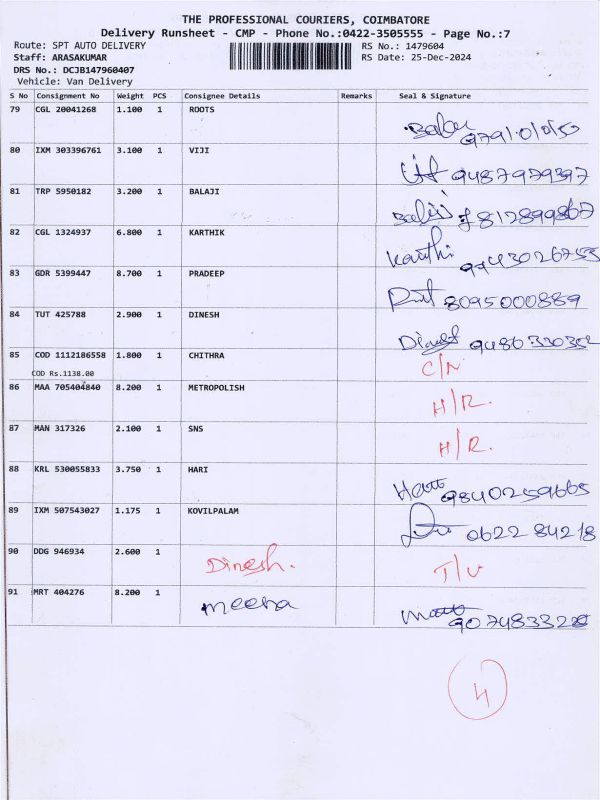 THE PROFESSIONAL COURIERS, COIMBATORE
Delivery Runsheet - CMP - Phone No.:0422-3505555 - Page No.:7
Route: SPT AUTO DELIVERY RS No.: 1479604
Staff: ARASAKUMAR RS Date: 25-Dec-2024
DRS No.: DCJB147960407
Vehicle: Van Delivery
S No Consignment No Weight PCS Consignee Details Remarks Seal & Signature
79 CGL 20041268 1.100 1 ROOTS
80 IXM 303396761 3.100 1 VIJI 9487979397
81 TRP 5950182 3.200 1 BALAJI
82 CGL 1324937 6.800 1 KARTHIK Karthi 9943026753
83 GDR 5399447 8.700 1 PRADEEP 8095000889
84 TUT 425788 2.900 1 DINESH Dinesh
85 COD 1112186558 1.800 1 CHITHRA C/N
COD Rs.1138.00
86 MAA 705404840 8.200 1 METROPOLISH H/R.
87 MAN 317326 2.100 1 SNS H/R.
88 KRL 530055833 3.750 1 HARI 9840259665
89 IXM 507543027 1.175 1 KOVILPALAM 0622 84218
90 DDG 946934 2.600 1 Dinesh. T/U
91 MRT 404276 8.200 1 meena
4